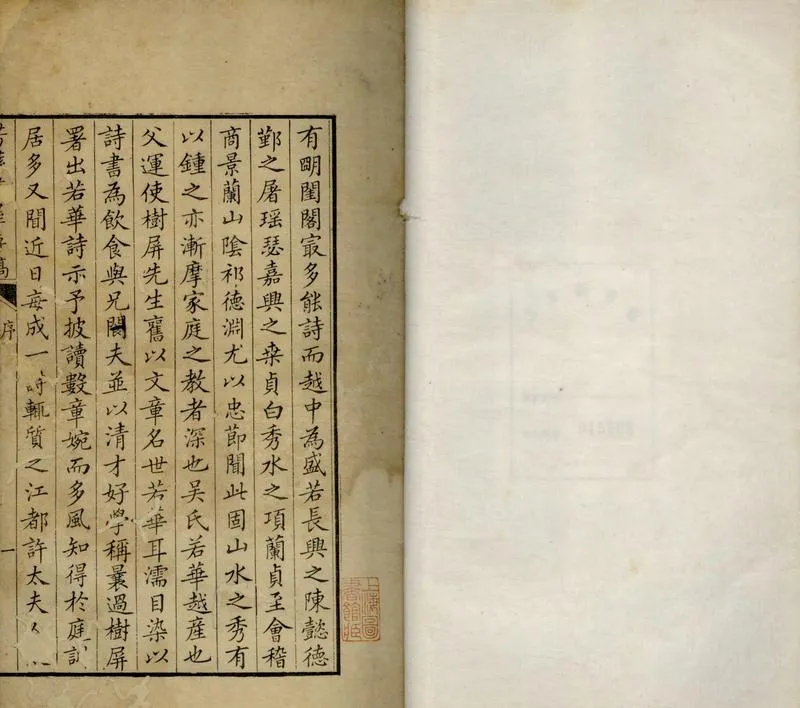 有朙閨閣㝡多能詩而越中為盛若長興之陳懿德
鄞之屠瑶瑟嘉興之桒貞白秀水之項蘭貞至會稽
商景蘭山陰祁德淵尤以忠節聞此固山水之秀有
以鍾之亦漸摩家庭之教者深也吳氏若華越産也
父運使樹屏先生舊以文章名世若華耳濡目染以
詩書為飲食與兄閬夫並以清才好學稱曩過樹屏
署出若華詩示予披讀數章婉而多風知得於庭訓
居多又聞近日每成一詩輒質之江都許太夫人
序
一
上海圖書館藏